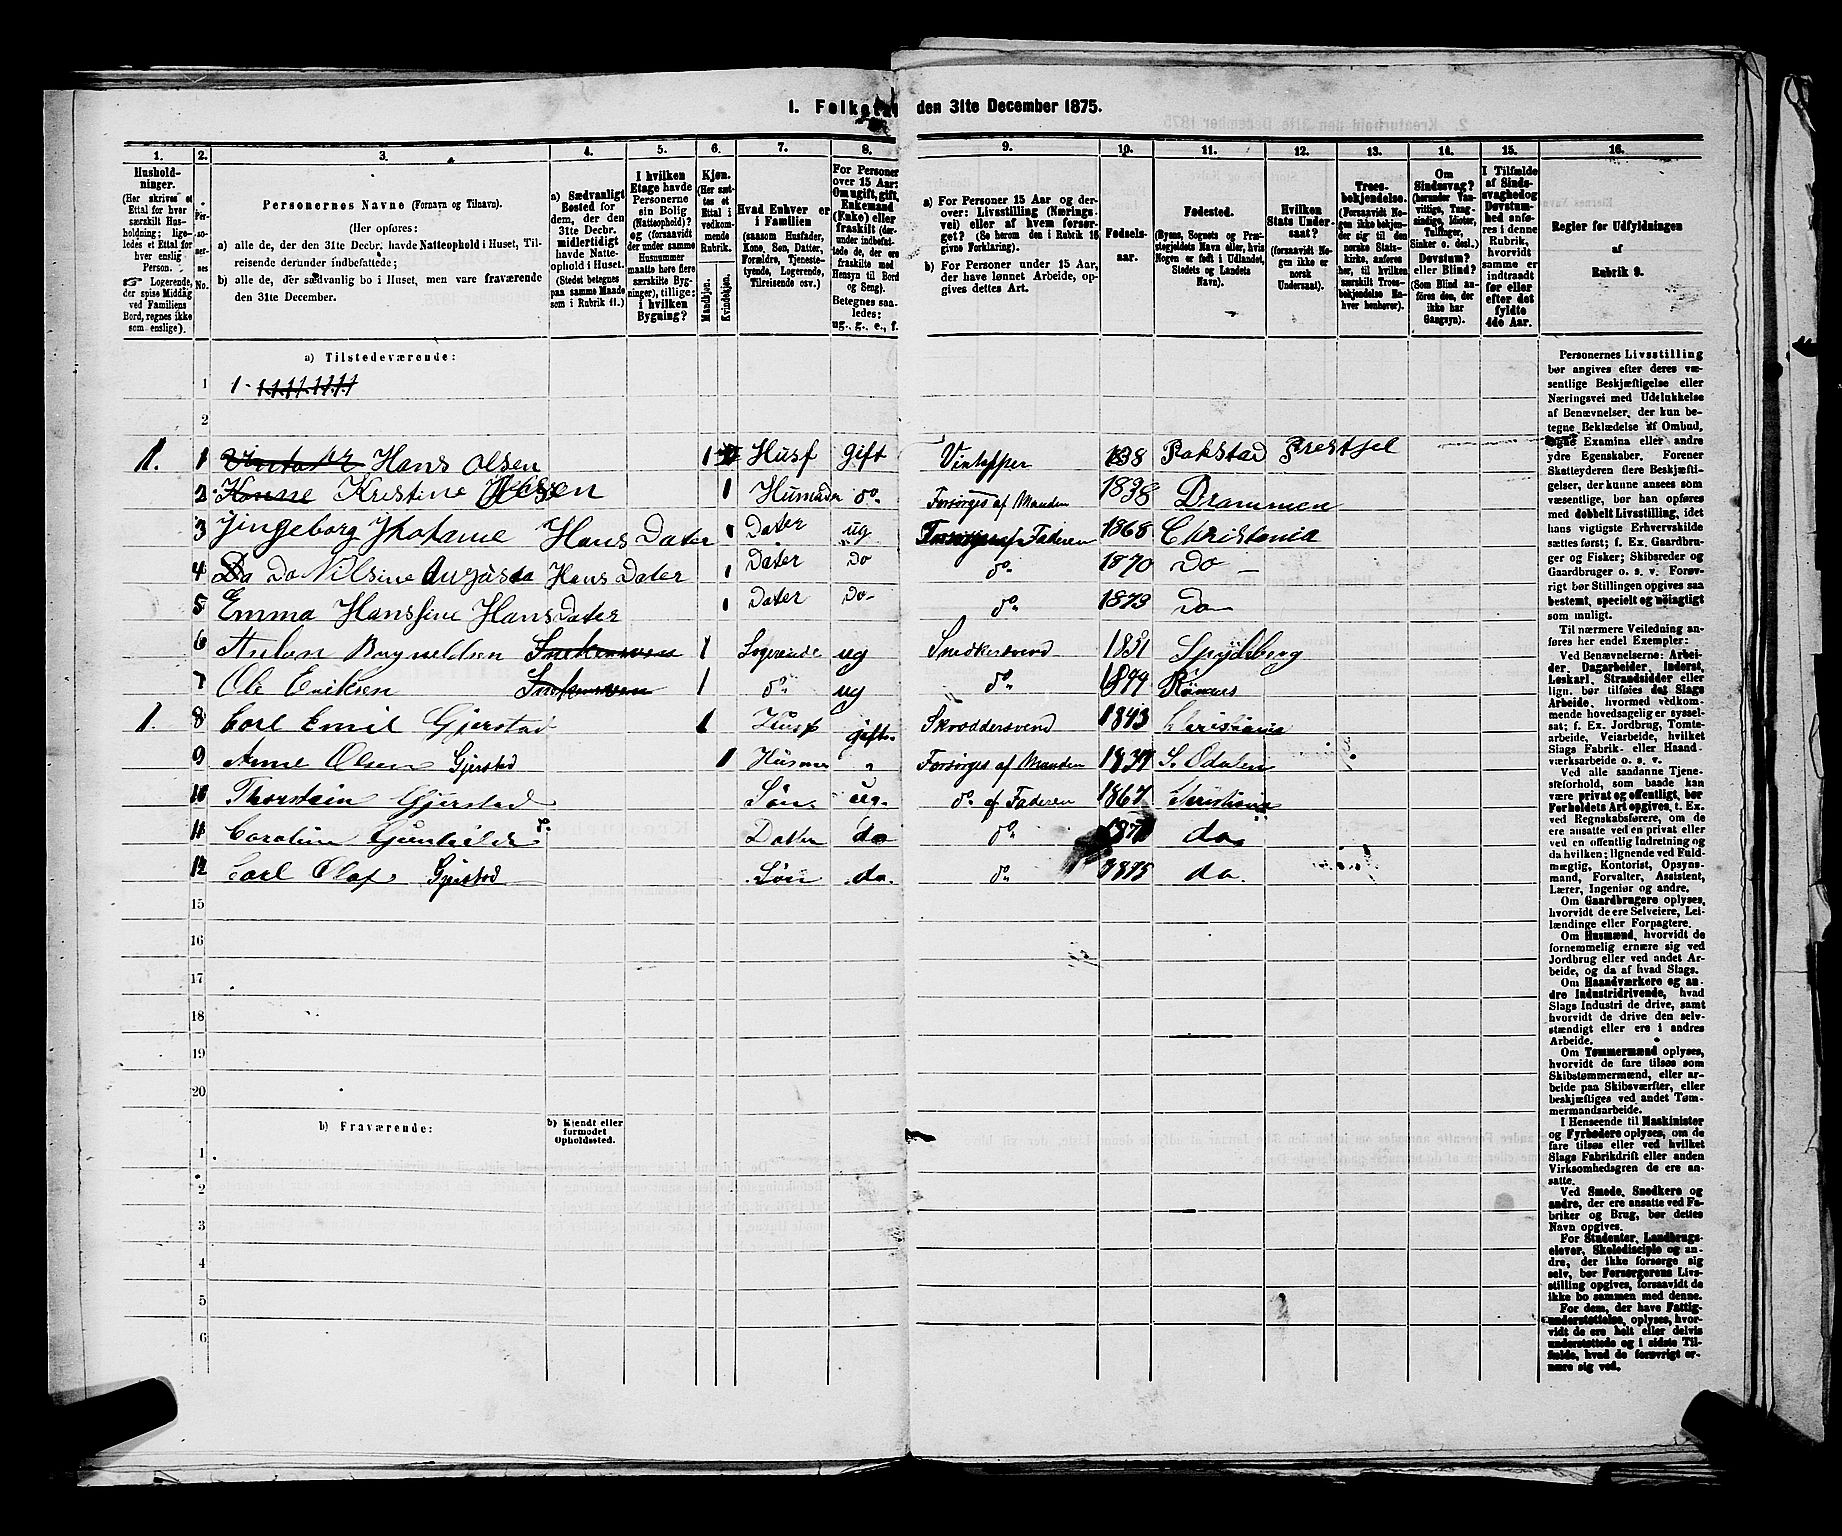 1. Folketæ den 31te December 1875.
1. 2. 3. 4. 5. 6. 7. 8. 9. 10. 11. 12. 13. 14. 15. 16.
Hushold-
ninger.
(Her skrives et
Ettal for hver
særskilt Hus-
holdning; lige-
ledes et Ettal for
hver enslig
Person.
☞ Logerende,
der spise Middag
ved Familiens
Bord, regnes ikke
som enslige).
Per-
so-
ner-
nes
No.
Personernes Navne (Fornavn og Tilnavn).
(Her opføres:
a) alle de, der den 31te Decbr. havde Natteophold i Huset, Til-
reisende derunder indbefattede;
b) alle de, der sædvanlig bo i Huset, men vare fraværende
den 31te December.
a) Sædvanligt
Bosted for
dem, der den
31te Decbr.
midlertidigt
havde Natte-
ophold i Huset.
(Stedet betegnes
paa samme Maade
som i Rubrik 11.)
I hvilken
Etage havde
Personerne
sin Bolig
(Natteophold)?
og (forsaavidt
der under samme
Husnummer
maatte høre flere
særskilte Byg-
ninger), tillige:
i hvilken
Bygning?
Kjøn.
(Her sæt-
tes et
Ettal i
vedkom-
mende
Rubrik.
Mandkjøn.
Kvindekjøn.
Hvad Enhver er
i Familien
(saasom Husfader,
Kone, Søn, Datter,
Forældre, Tjeneste-
tyende, Logerende,
Tilreisende osv.)
For Personer
over 15 Aar:
Om ugift, gift,
Enkemand
(Enke) eller
fraskilt (der-
under indbefat-
tede de, der ere
fraskilte med
Hensyn til Bord
og Seng).
Betegnes saa-
ledes:
ug., g., e., f.
a) For Personer 15 Aar og der-
over: Livsstilling (Nærings-
vei) eller af hvem forsør-
get? (Se herom den i Rubrik 16
givne Forklaring).
b) For Personer under 15 Aar,
der have lønnet Arbeide, op-
gives dettes Art.
Fødsels-
aar.
Fødested.
(Byens, Sognets og Præ-
stegjeldets Navn eller, hvis
Nogen er født i Udlandet,
Stedets og Landets
Navn).
Hvilken
Stats Under-
saat?
(forsaavidt No-
gen ikke er
norsk
Undersaat).
Troes-
bekjendelse.
(Forsaavidt No-
gen ikke beken-
der sig til den
norske Stats-
kirke, anføres
her, til hvilken
særskilt Troes-
bekjendelse En-
hver henhører).
Om
Sindssvag?
(herunder Van-
vittige, Tung-
sindige, Idioter,
Tullinger,
Sinker o. desl.)
Døvstum?
eller Blind?
(Som Blind an-
føres den, der
ikke har
Gangsyn).
I Tilfælde
af Sinds-
svaghed og
Døvstum-
hed anfø-
res i denne
Rubrik,
hvorvidt
samme er
indtraadt
før eller
efter det
fyldte
4de Aar.
Regler for Udfyldningen
af
Rubrik 9.
a) Tilstedeværende:
1 1-
2
1. 1 Hans Olsen 1 Husf gift Vintapper 1838 Prestjel
2 Kristine 1 Husmoder do. Forsørges af Manden 1838 Drammen
3 Hans Dater 1 Dater ug Faderen 1868 Christania
4 Do Nilsine Augusta Hans Dater 1 Dater Do do. 1870 Do
5 Emma Hansine Hans Dater 1 Dater Do do. 1873 Do
6 Anton 1 Logerende ug Snedkersvend 1851 Spydeberg
7 Ole Eriksen 1 do. ug do.
1. 8 Carl Emil Gjerstad 1 Husf gift. Skræddersvend 1843 Christiania
9 Anne Olsen Gjerstad 1 Husmor „ Forsørges af Manden S. Odalen
10 Thorstein Gjerstad Søn ug. do. af Faderen 1867 Christiania
11 Caroline Gunhilde do. Dater do do. do
12 Carl Olaf Gjerstad Søn do. do. 1875 do.
15
16
17
18
19
20
b) Fraværende: b) Kjendt eller
formodet
Opholdssted.
1
2
3
4
5
6
Personernes Livsstilling
bør angives efter deres væ-
sentlige Beskjæftigelse eller
Næringsvei med Udelukkelse
af Benævnelser, der kun be-
tegne Beklædelse af Ombud,
tagne Examina eller andre
ydre Egenskaber. Forener
Skatteyderen flere Beskjæfti-
gelser, der kunne ansees som
væsentlige, bør han opføres
med dobbelt Livsstilling, idet
hans vigtigste Erhvervskilde
sættes først; f. Ex. Gaardbru-
ger og Fisker; Skibsreder og
Gaardbruger o. s. v. Forøv-
rigt bør Stillingen opgives saa
bestemt, specielt og nøiagtigt
som muligt.
Til nærmere Veiledning an-
føres her endel Exempler:
Ved Benævnelserne: Arbei-
der, Dagarbeider, Inderst,
Løskarl, Strandsidder eller
lign. bør tilføies det Slags
Arbeide, hvormed vedkom-
mende hovedsagelig er syssel-
sat; f. Ex. Jordbrug, Tomte-
arbeide, Veiarbeide, hvilket
Slags Fabrik- eller Haand-
værksarbeide o. s. v.
Ved alle saadanne Tjene-
steforhold, som baade kan
være privat og offentligt, bør
Forholdets Art opgives, t. Ex.
ved Regnskabsførere, om de
ere ansatte ved en privat eller
ved en offentlig Indretning og
da hvilken; lignende ved Fuld-
mægtig, Kontorist, Opsyns-
mand, Forvalter, Assistent,
Lærer, Ingeniør og andre.
Om Gaardbrugere oplyses,
hvorvidt de ere Selveiere, Lei-
lændinge eller Forpagtere.
Om Husmænd, hvorvidt de
fornemmelig ernære sig ved
Jordbrug eller ved andet Ar-
beide, og da af hvad Slags.
Om Haandværkere og an-
dre Industridrivende, hvad
Slags Industri de drive, samt
hvorvidt de drive den selv-
stændigt eller ere i andres
Arbeide.
Om Tømmermænd oplyses,
hvorvidt de fare tilsøs som
Skibstømmermænd, eller ar-
beide paa Skibsværfter, eller
beskjæftiges ved andet Tøm-
mermandsarbeide.
I Henseende til Maskinister
og Fyrbødere oplyses, om de
fare tilsøs eller ved hvilket
Slags Fabrikdrift eller anden
Virksomhedsgren de ere an-
satte.
Ved Smede, Snedkere og
andre, der ere ansatte ved Fa-
briker og Brug, bør dettes
Navn opgives.
For Studenter, Landbrugs-
elever, Skoledisciple og an-
dre, der ikke forsørge sig
selv, bør Forsørgerens Livs-
stilling opgives, forsaavidt de
ikke bo sammen med denne.
For dem, der have Fattig-
understøttelse, oplyses, hvor-
vidt de ere helt eller delvis
understøttede og i sidste Til-
fælde, hvad de forøvrigt er-
nære sig ved.